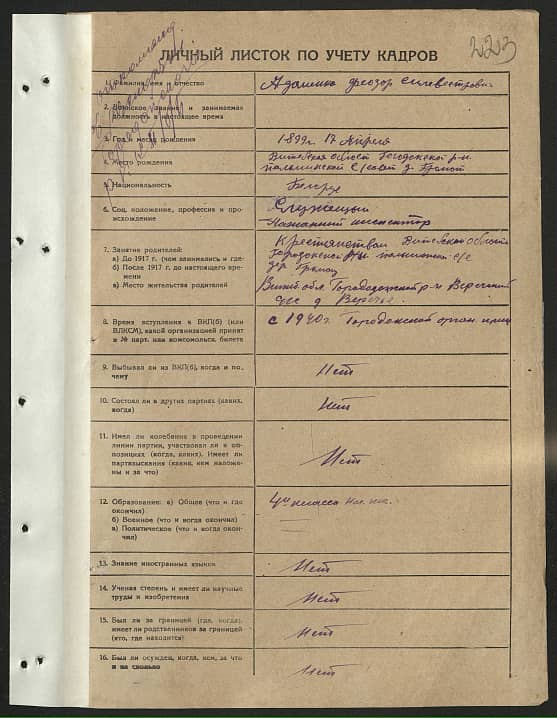 223
ЛИЧНЫЙ ЛИСТОК ПО УЧЕТУ КАДРОВ
1. Фамилия, имя и отчество
Адаменко Феодор Сильвестрович
2. Воинское звание и занимаемая
должность в настоящее время
3. Год и место рождения
1899 г. 17 Апреля
4. Место рождения
Витебская област Городокской р-н
с/совет д.
5. Национальность
Белорус
6. Соц. положение, профессия и про-
исхождение
Служащий
инспектор
7. Занятие родителей:
а) До 1917 г. (чем занимались и где)
б) После 1917 г. до настоящего вре-
мени
в) Место жительства родителей
Крестянством Витебская области
Городокской р-н с/с
дер.
Витеб. обл. Городокский р-н
с/с д.
8. Время вступления в ВКП(б) (или
ВЛКСМ), какой организацией принят
и № парт. или комсомольск. билета
с 1940 г. Городокской орган.
9. Выбывал ли из ВКП(б), когда и по-
чему
Нет
10. Состоял ли в других партиях (каких,
когда)
Нет
11. Имел ли колебания в проведении
линии партии, участвовал ли в оп-
позициях (когда, каких). Имеет ли
партвзыскания (какие, кем наложе-
ны и за что)
Нет
12. Образование: а) Общее (что и где
окончил)
б) Военное (что и когда окончил)
в) Политическое (что и когда окон-
чил)
4 класса
13. Знание иностранных языков
Нет
14. Ученая степень и имеет ли научные
труды и изобретения
Нет
15. Был ли за границей (где, когда),
имеет ли родственников за границей
(кто, где находится)
Нет
16. Был ли осужден, когда, кем, за что
и на сколько
Нет